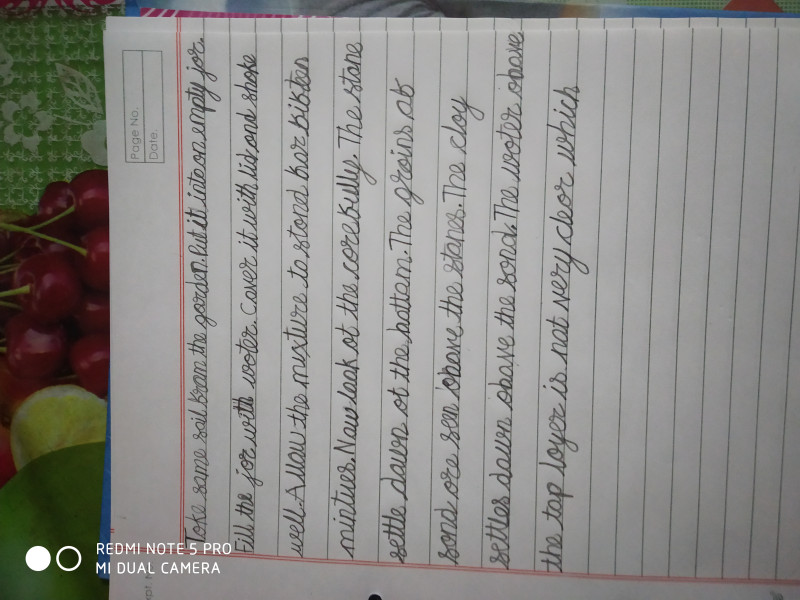 Page No.
Date.
Take some soil from the garden. Put it into an empty jar.
Fill the jar with water. Cover it with lid and shake
well. Allow the mixture to stand for fifteen
mintues. Now look at the carefully. The stone
settle down at the bottom. The grains of
sand are sen above the stones. The clay
settles down above the sand. The water above
the top layer is not very clear which
REDMI NOTE 5 PRO
MI DUAL CAMERA